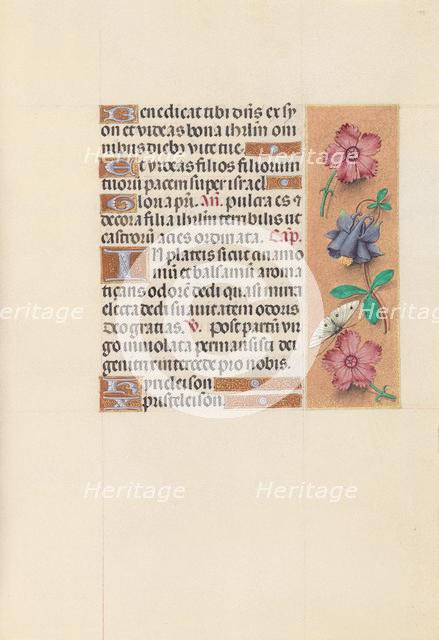 Benedicat tibi dñs ex sy
on et videas bona ihrlm om
nibus dieb⁹ vite tue.
Et videas filios filiorum
tuorũ pacem super israel.
Gloria pr̃i. Añ. pulcra es ⁊
decora filia ihrlm terribilis ut
castrorũ acies ordinata. Cap̃.
In plateis sicut cinamo
mũ et balsamũ aroma
tizans odorẽ dedi quasi mirra
electa dedi suavitatem odoris
Deo gratias. ℣. Post partũ vir
go inviolata permansisti dei
genitrix intercede pro nobis.
Kyrieleison.
Xpristeleison.
Heritage
Heritage
Heritage
Heritage
Heritage
Heritage